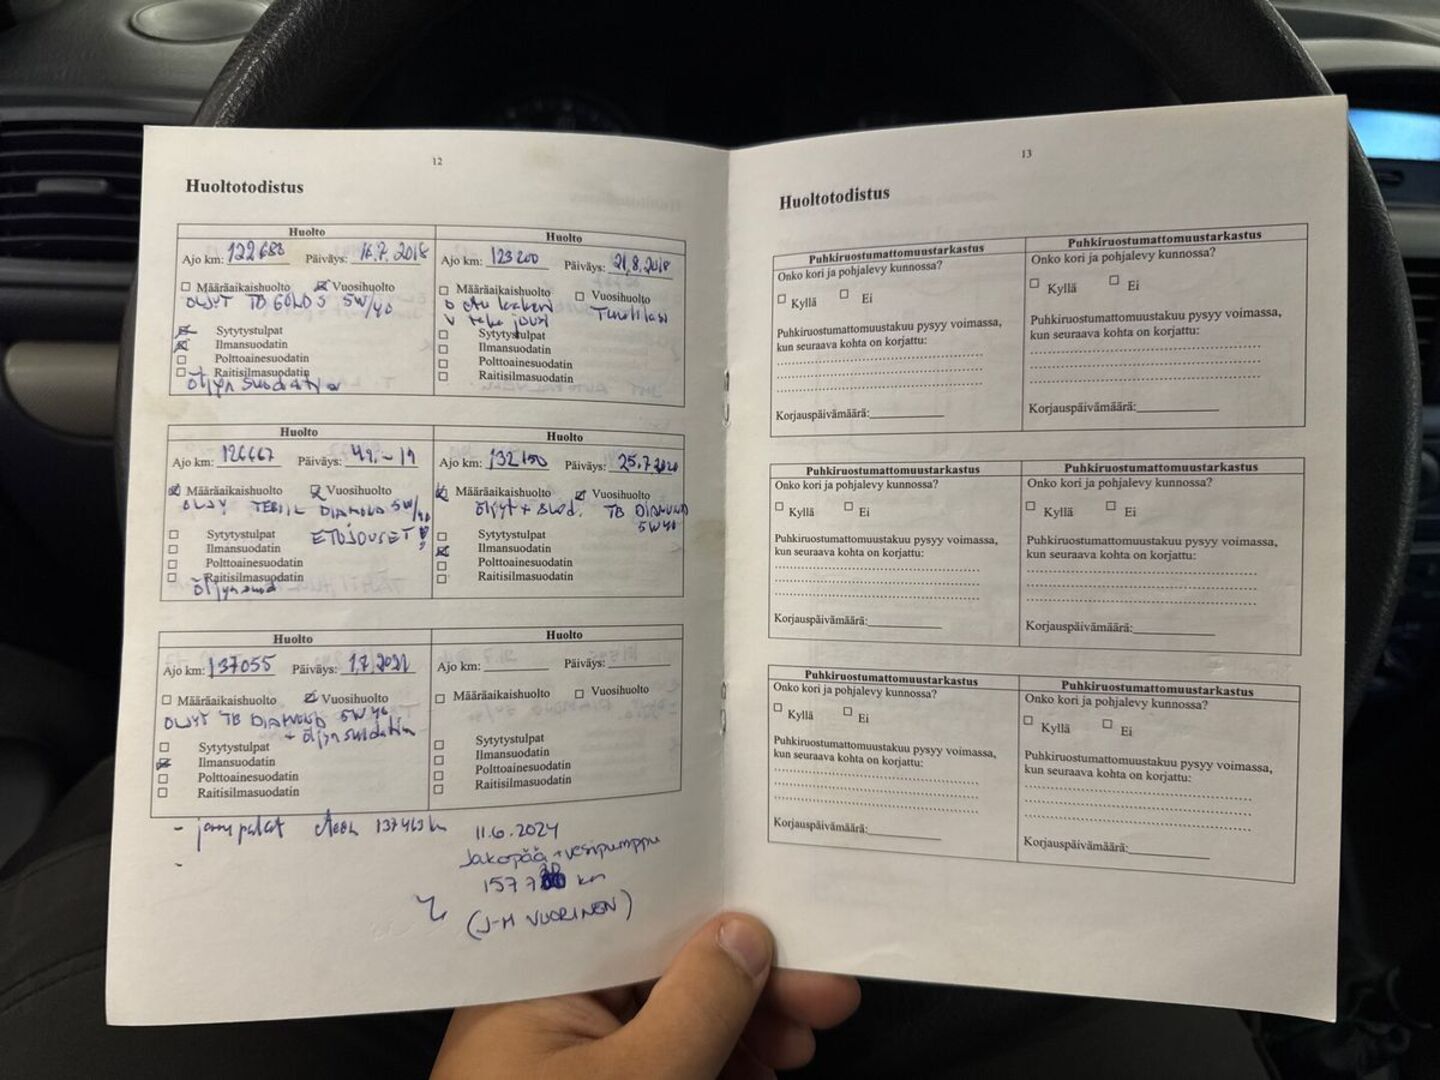 12
Huoltotodistus
Huolto
Ajo km: 122688 Päiväys: 16.7.2018
Määräaikaishuolto Vuosihuolto
ÖLJYT TB GOLD S 5W/40
Sytytystulpat
Ilmansuodatin
Polttoainesuodatin
Raitisilmasuodatin
öljyn suodatin
Huolto
Ajo km: 123200 Päiväys: 21.8.2018
Määräaikaishuolto Vuosihuolto
Tuulilasi
jousi
Sytytystulpat
Ilmansuodatin
Polttoainesuodatin
Raitisilmasuodatin
Huolto
Ajo km: 126667 Päiväys:
Määräaikaishuolto Vuosihuolto
DIAMOND 5W/40
Sytytystulpat ETUJOUSET!
Ilmansuodatin
Polttoainesuodatin
Raitisilmasuodatin
öljynsuod
Huolto
Ajo km: 132150 Päiväys: 25.7.2020
Määräaikaishuolto Vuosihuolto
öljyt + suod. TB DIAMOND
5W40
Sytytystulpat
Ilmansuodatin
Polttoainesuodatin
Raitisilmasuodatin
Huolto
Ajo km: 137055 Päiväys: 1.7.2021
Määräaikaishuolto Vuosihuolto
ÖLJYT TB DIAMOND 5W40
+ öljynsuodatin
Sytytystulpat
Ilmansuodatin
Polttoainesuodatin
Raitisilmasuodatin
Huolto
Ajo km: Päiväys:
Määräaikaishuolto Vuosihuolto
Sytytystulpat
Ilmansuodatin
Polttoainesuodatin
Raitisilmasuodatin
- jarrupalat eteen 137463 km
-
11.6.2024
Jakopää + vesipumppu
km
(J-M VUORINEN)
13
Huoltotodistus
Puhkiruostumattomuustarkastus
Onko kori ja pohjalevy kunnossa?
Kyllä Ei
Puhkiruostumattomuustakuu pysyy voimassa,
kun seuraava kohta on korjattu:
Korjauspäivämäärä:
Puhkiruostumattomuustarkastus
Onko kori ja pohjalevy kunnossa?
Kyllä Ei
Puhkiruostumattomuustakuu pysyy voimassa,
kun seuraava kohta on korjattu:
Korjauspäivämäärä:
Puhkiruostumattomuustarkastus
Onko kori ja pohjalevy kunnossa?
Kyllä Ei
Puhkiruostumattomuustakuu pysyy voimassa,
kun seuraava kohta on korjattu:
Korjauspäivämäärä:
Puhkiruostumattomuustarkastus
Onko kori ja pohjalevy kunnossa?
Kyllä Ei
Puhkiruostumattomuustakuu pysyy voimassa,
kun seuraava kohta on korjattu:
Korjauspäivämäärä:
Puhkiruostumattomuustarkastus
Onko kori ja pohjalevy kunnossa?
Kyllä Ei
Puhkiruostumattomuustakuu pysyy voimassa,
kun seuraava kohta on korjattu:
Korjauspäivämäärä:
Puhkiruostumattomuustarkastus
Onko kori ja pohjalevy kunnossa?
Kyllä Ei
Puhkiruostumattomuustakuu pysyy voimassa,
kun seuraava kohta on korjattu:
Korjauspäivämäärä: